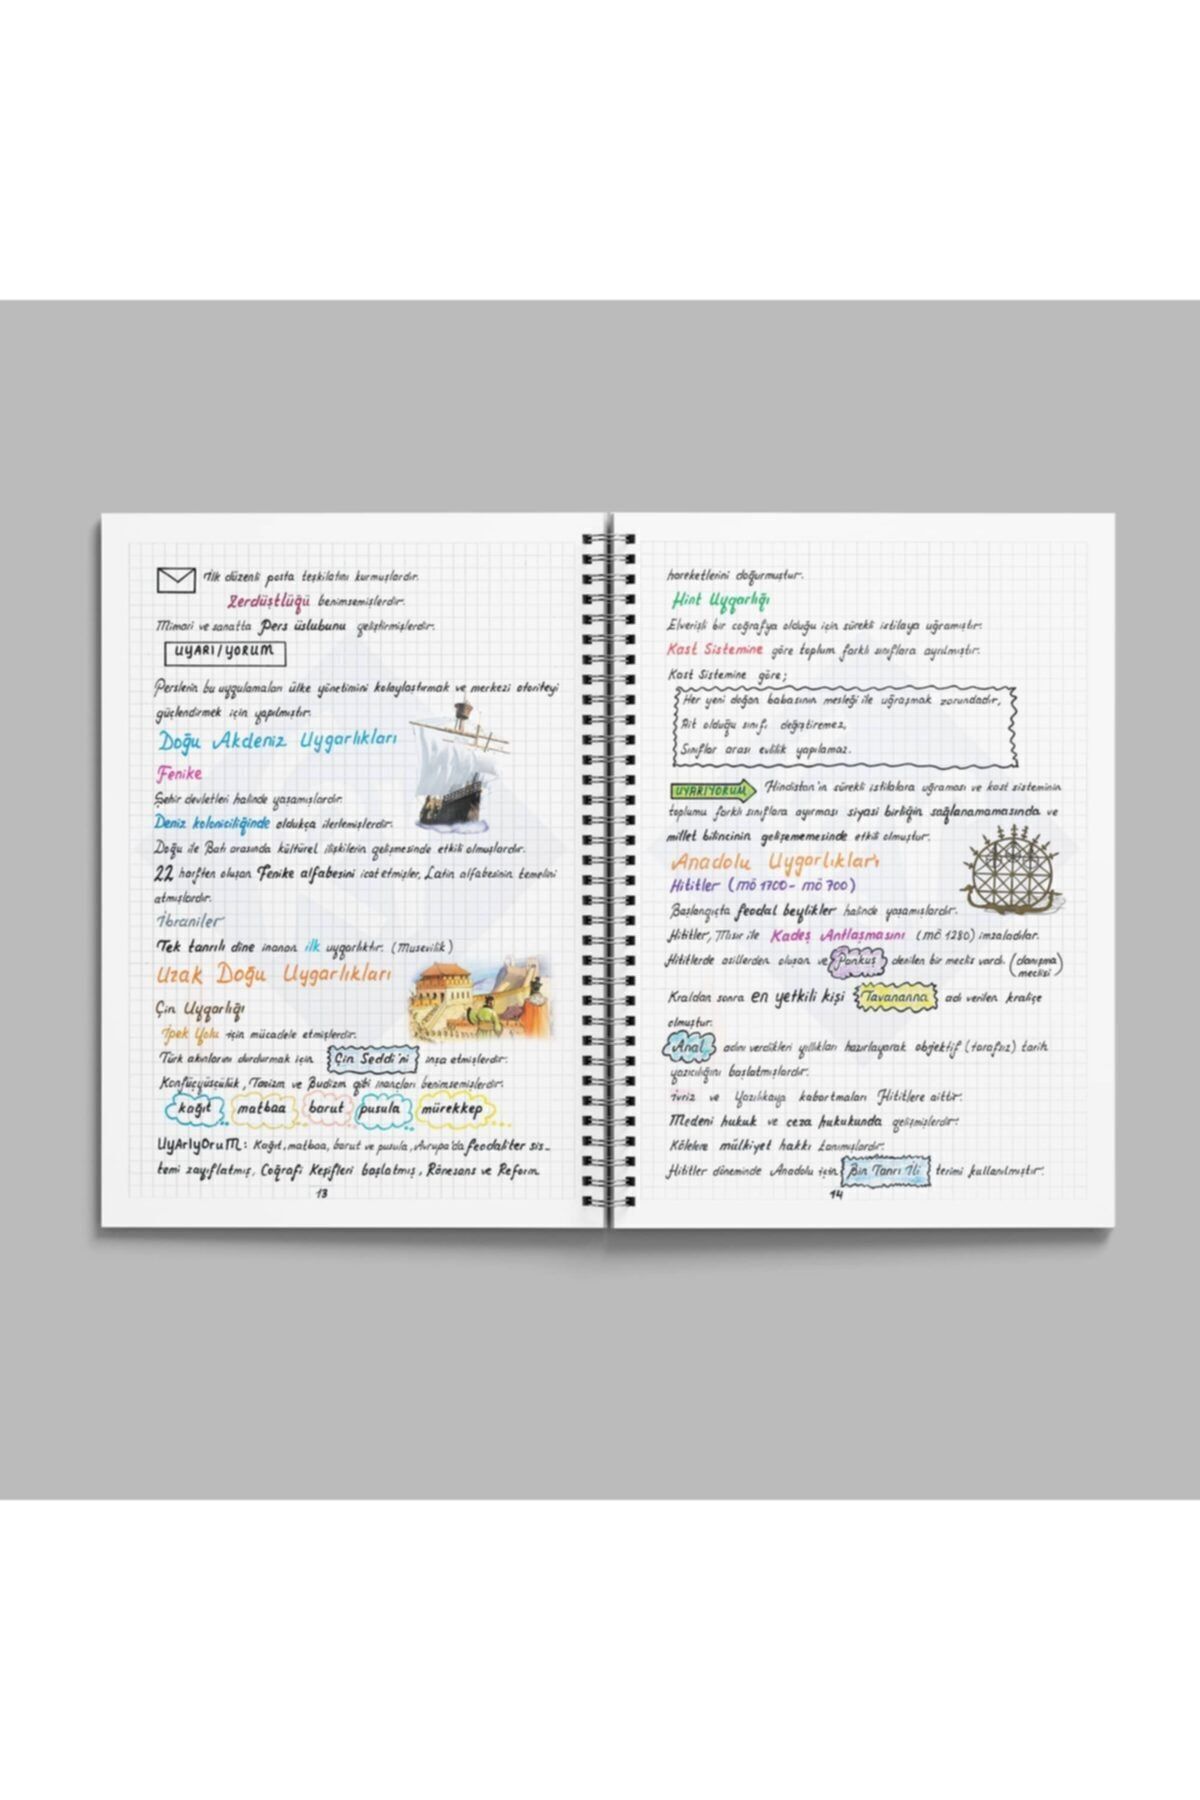 İlk düzenli posta teşkilatını kurmuşlardır.
Zerdüştlüğü benimsemişlerdir.
Mimari ve sanatta Pers üslubunu geliştirmişlerdir.
UYARI/YORUM
Perslerin bu uygulamaları ülke yönetimini kolaylaştırmak ve merkezi otoriteyi
güçlendirmek için yapılmıştır.
Doğu Akdeniz Uygarlıkları
Fenike
Şehir devletleri halinde yaşamışlardır.
Deniz koloniciliğinde oldukça ilerlemişlerdir.
Doğu ile Batı arasında kültürel ilişkilerin gelişmesinde etkili olmuşlardır.
22 harften oluşan Fenike alfabesini icat etmişler, Latin alfabesinin temelini
atmışlardır.
İbraniler
Tek tanrılı dine inanan ilk uygarlıktır. (Musevilik)
Uzak Doğu Uygarlıkları
Çin Uygarlığı
İpek Yolu için mücadele etmişlerdir.
Türk akınlarını durdurmak için Çin Seddi'ni inşa etmişlerdir.
Konfüçyüsçülük, Taoizm ve Budizm gibi inançları benimsemişlerdir.
kağıt matbaa barut pusula mürekkep
UyArIyOruM: Kağıt, matbaa, barut ve pusula, Avrupa'da feodalite sis-
temi zayıflatmış, Coğrafi Keşifleri başlatmış, Rönesans ve Reform
13
hareketlerini doğurmuştur.
Hint Uygarlığı
Elverişli bir coğrafya olduğu için sürekli istilaya uğramıştır.
Kast Sistemine göre toplum farklı sınıflara ayrılmıştır.
Kast Sistemine göre;
Her yeni doğan babasının mesleği ile uğraşmak zorundadır,
Ait olduğu sınıfı değiştiremez,
Sınıflar arası evlilik yapılamaz.
UYARIYORUM Hindistan'ın sürekli istilalara uğraması ve kast sisteminin
toplumu farklı sınıflara ayırması siyasi birliğin sağlanamamasında ve
millet bilincinin gelişememesinde etkili olmuştur.
Anadolu Uygarlıkları
Hititler (mö 1700- mö 700)
Başlangıçta feodal beylikler halinde yaşamışlardır.
Hititler, Mısır ile Kadeş Antlaşmasını (mö 1280) imzaladılar.
Hititlerde asillerden oluşan ve Pankuş denilen bir meclis vardı. (danışma
meclisi)
Kraldan sonra en yetkili kişi Tavananna adı verilen kraliçe
olmuştur.
Anal adını verdikleri yıllıkları hazırlayarak objektif (tarafsız) tarih
yazıcılığını başlatmışlardır.
İvriz ve Yazılıkaya kabartmaları Hititlere aittir.
Medeni hukuk ve ceza hukukunda gelişmişlerdir.
Kölelere mülkiyet hakkı tanımışlardır.
Hititler döneminde Anadolu için Bin Tanrı İli terimi kullanılmıştır.
14